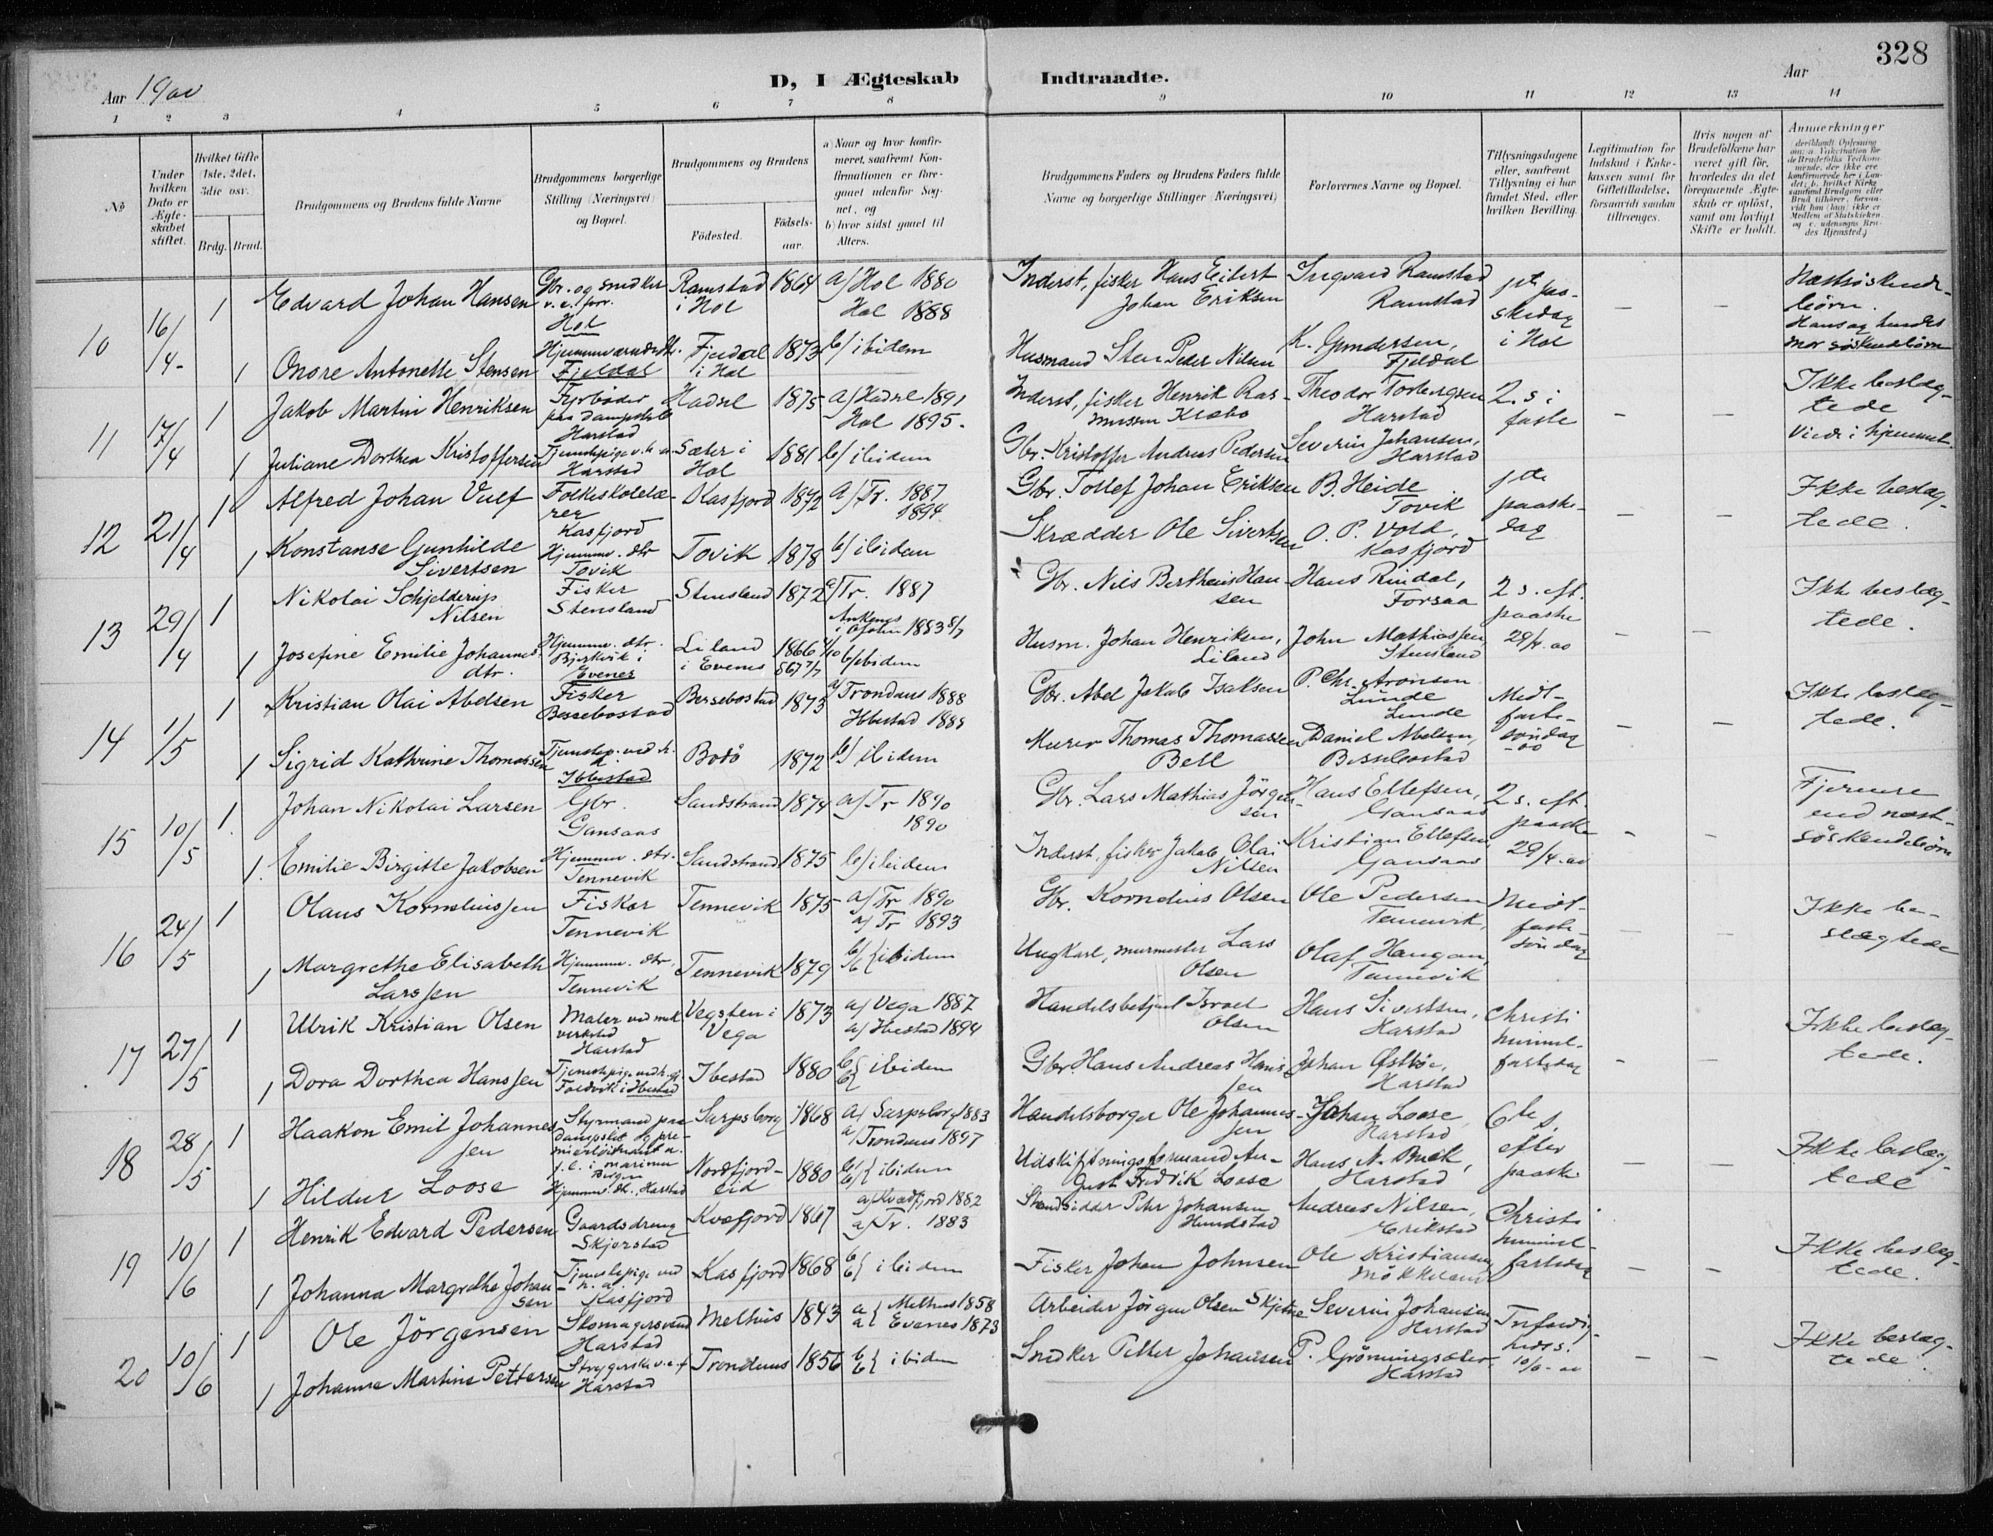 328
D, I Ægteskab Indtraadte.
Aar 1900
Aar
1 2 3 4 5 6 7 8 9 10 11 12 13 14
No
Under hvilken Dato er Ægteskabet stiftet.
Hvilket Gifte 1ste, 2det, 3die osv.
Brdg. Brud.
Brudgommens og Brudens fulde Navne
Brudgommens borgerlige Stilling (Næringsvei) og Bopæl.
Brudgommens og Brudens
Fødested. Fødselsaar.
a) Naar og hvor konfirmeret, saafremt Konfirmationen er foregaaet udenfor Sognet, og
b) hvor sidst gaaet til Alters.
Brudgommens Faders og Brudens Faders fulde Navne og borgerlige Stillinger (Næringsvei)
Forlovernes Navne og Bopæl.
Tillysningsdagene eller, saafremt Tillysning ei har fundet Sted, efter hvilken Bevilling.
Legitimation for Indskud i Enkekassen samt for Giftetilladelse, forsaavidt saadan tiltrænges.
Hvis nogen af Brudefolkene har været gift før, hvorledes da det foregaaende Ægteskab er opløst, samt om lovligt Skifte er holdt.
Anmerkninger
10 16/4 1 Edvard Johan Hansen Gbr. og snedker Hol Ramstad i Hol 1864 a/ Hol 1880 Hol 1888 Inderst, fisker Hans Eibert Johan Eriksen Ingvard Ramstad Ramstad 1ste paaskedag i Hol – – Næstsøskendebørn. Hans og hendes mor søskendebørn
1 Onore Antonette Stensen Fjeldal Fjeldal i Hol 1873 b/ ibidem Husmand Sten Peder Nilsen K. Gundersen, Fjeldal
11 17/4 1 Jakob Martin Henriksen Fyrbøder paa Dampskib Harstad Hadsel 1875 a/ Hadsel 1891 Hol 1895. Inderst, fisker Henrik Rasmussen Theodor Torbergsen Harstad 2. s i faste – – Ikke beslægtede Viede i hjemmet.
1 Juliane Dorthea Kristoffersen Harstad Sæter i Hol 1881 b/ ibidem Gbr. Kristoffer Andreas Pedersen Severin Johansen, Harstad
12 21/4 1 Alfred Johan Vulf Folkeskolelærer Kasfjord Kasfjord 1872 a/ Tr. 1887 1894 Gbr. Tollef Johan Eriksen B. Heide Tovik 1ste paaskedag – – Ikke beslægtede.
1 Konstanse Gunhilde Sivertsen Hjemmev. dtr Tovik Tovik 1878 b/ ibidem Skrædder Ole Sivertsen O. P. Vold, Kasfjord
13 29/4 1 Nikolai Schjelderup Nilsen Fisker Stensland Stensland 1872 a/ Tr. 1887 Gbr. Nils Hansen Hans Rindal, Forsaa 2 s. eft. paaske 29/4. 00 – – Ikke beslægtede.
1 Josefine Emilie Johannesdtr. Hjemmev. dtr. Bjerkvik i Evenes Liland i Evenes 1866 b/ ibidem Husm. Johan Henriksen, Liland John Mathiassen, Stensland
14 1/5 1 Kristian Olai Abelsen Fisker Bessebostad Bessebostad 1873 a/ Trondenes 1888 Ibbestad 1888 Gbr. Abel Jakob Isaksen P. Chr. Aronsen Lunde Lunde Midtfastesøndag 00 – – Ikke beslægtede.
1 Sigrid Kathrine Thomassen Ibbestad Bodø 1872 b/ ibidem Murer Thomas Thomassen Bell Daniel Abelsen, Bessebostad
15 10/5 1. Johan Nikolai Larsen Gbr. Gansaas Sandstrand 1874 a/ Tr 1890 1890 Gbr. Lars Mathias Jörgensen Hans Ellefsen, Gansaas 2 s. eft. paaske 29/4. 00 – – Fjernere end næstsöskendebörn
1. Emilie Birgitte Jakobsen Hjemmev. dtr. Tennevik Sandstrand 1875 b/ ibidem Inderst, fisker Jakob Olai Nilsen Kristian Ellefsen, Gansaas
16 24/5 1 Olaus Korneliussen Fisker Tennevik Tennevik 1875 a/ Tr 1890 a/ Tr 1893 Gbr. Kornelius Olsen Ole Pedersen Tennevik, Midtfastesöndag – – Ikke beslægtede
1 Margrethe Elisabeth Larssen Hjemmev. dtr, Tennevik Tennevik 1879 b/ ibidem Ungkarl, murmester Lars Olsen Olaf Haugan, Tennevik
17 27/5 1 Ulrik Kristian Olsen Maler ved mek verksted Harstad Vegsten i Vega 1873 a/ Vega 1887 a/ Ibestad 1894 Handelsbetjent Israel Olsen Hans Sivertsen, Harstad Christi himmelfartsdag – – Ikke beslægtede.
1 Dora Dorthea Hanssen i Ibestad Ibestad 1880 b/ ibidem Gbr Hans Andreas Hanssen Johan Østbøe, Harstad
18 28/5 1 Haakon Emil Johannessen Styrmand paa dampskib og premierlöitnant i marinen Bergen Sarpsborg 1868 a/ Sarpsborg 1883 a/ Trondenes 1897 Handelsborger Ole Johannessen Johan Loose, Harstad 6te s. efter paaske Ikke beslægtede
1 Hildur Loose Hjemmev. dt. Harstad Nordfjordeid 1880 b/ ibidem Udskiftningsformand August Fredrik Loose Hans N. Buck, Harstad
19 10/6 1 Henrik Edvard Pedersen Gaardsdreng Skjerstad Kvæfjord 1867 a/ Kvædfjord 1882 a/ Tr. 1883 Strandsidder Peter Johansen Hundstad Andreas Nilsen, Erikstad Christi himmelfartsdag – – Ikke beslægtede.
1 Johanna Margrethe Johansen Tjenestepige ved h. a. Kasfjord Kasfjord 1868 b/ ibidem Fisker Johan Johnsen Ole Kristiansen, Møkkeland
20 10/6 1 Ole Jörgensen Skomagersvend Harstad Melhus 1843 a{ Melhus 1858 a{ Evenes 1873 Arbeider Jörgen Olsen Skjetne Severin Johansen Harstad 10/6. 00 – – Ikke beslægtede.
1 Johanna Martine Pettersen Strygerske Harstad Trondenes 1856 b{ ibidem Snedker Petter Johansen P. Grönningsæter, Harstad